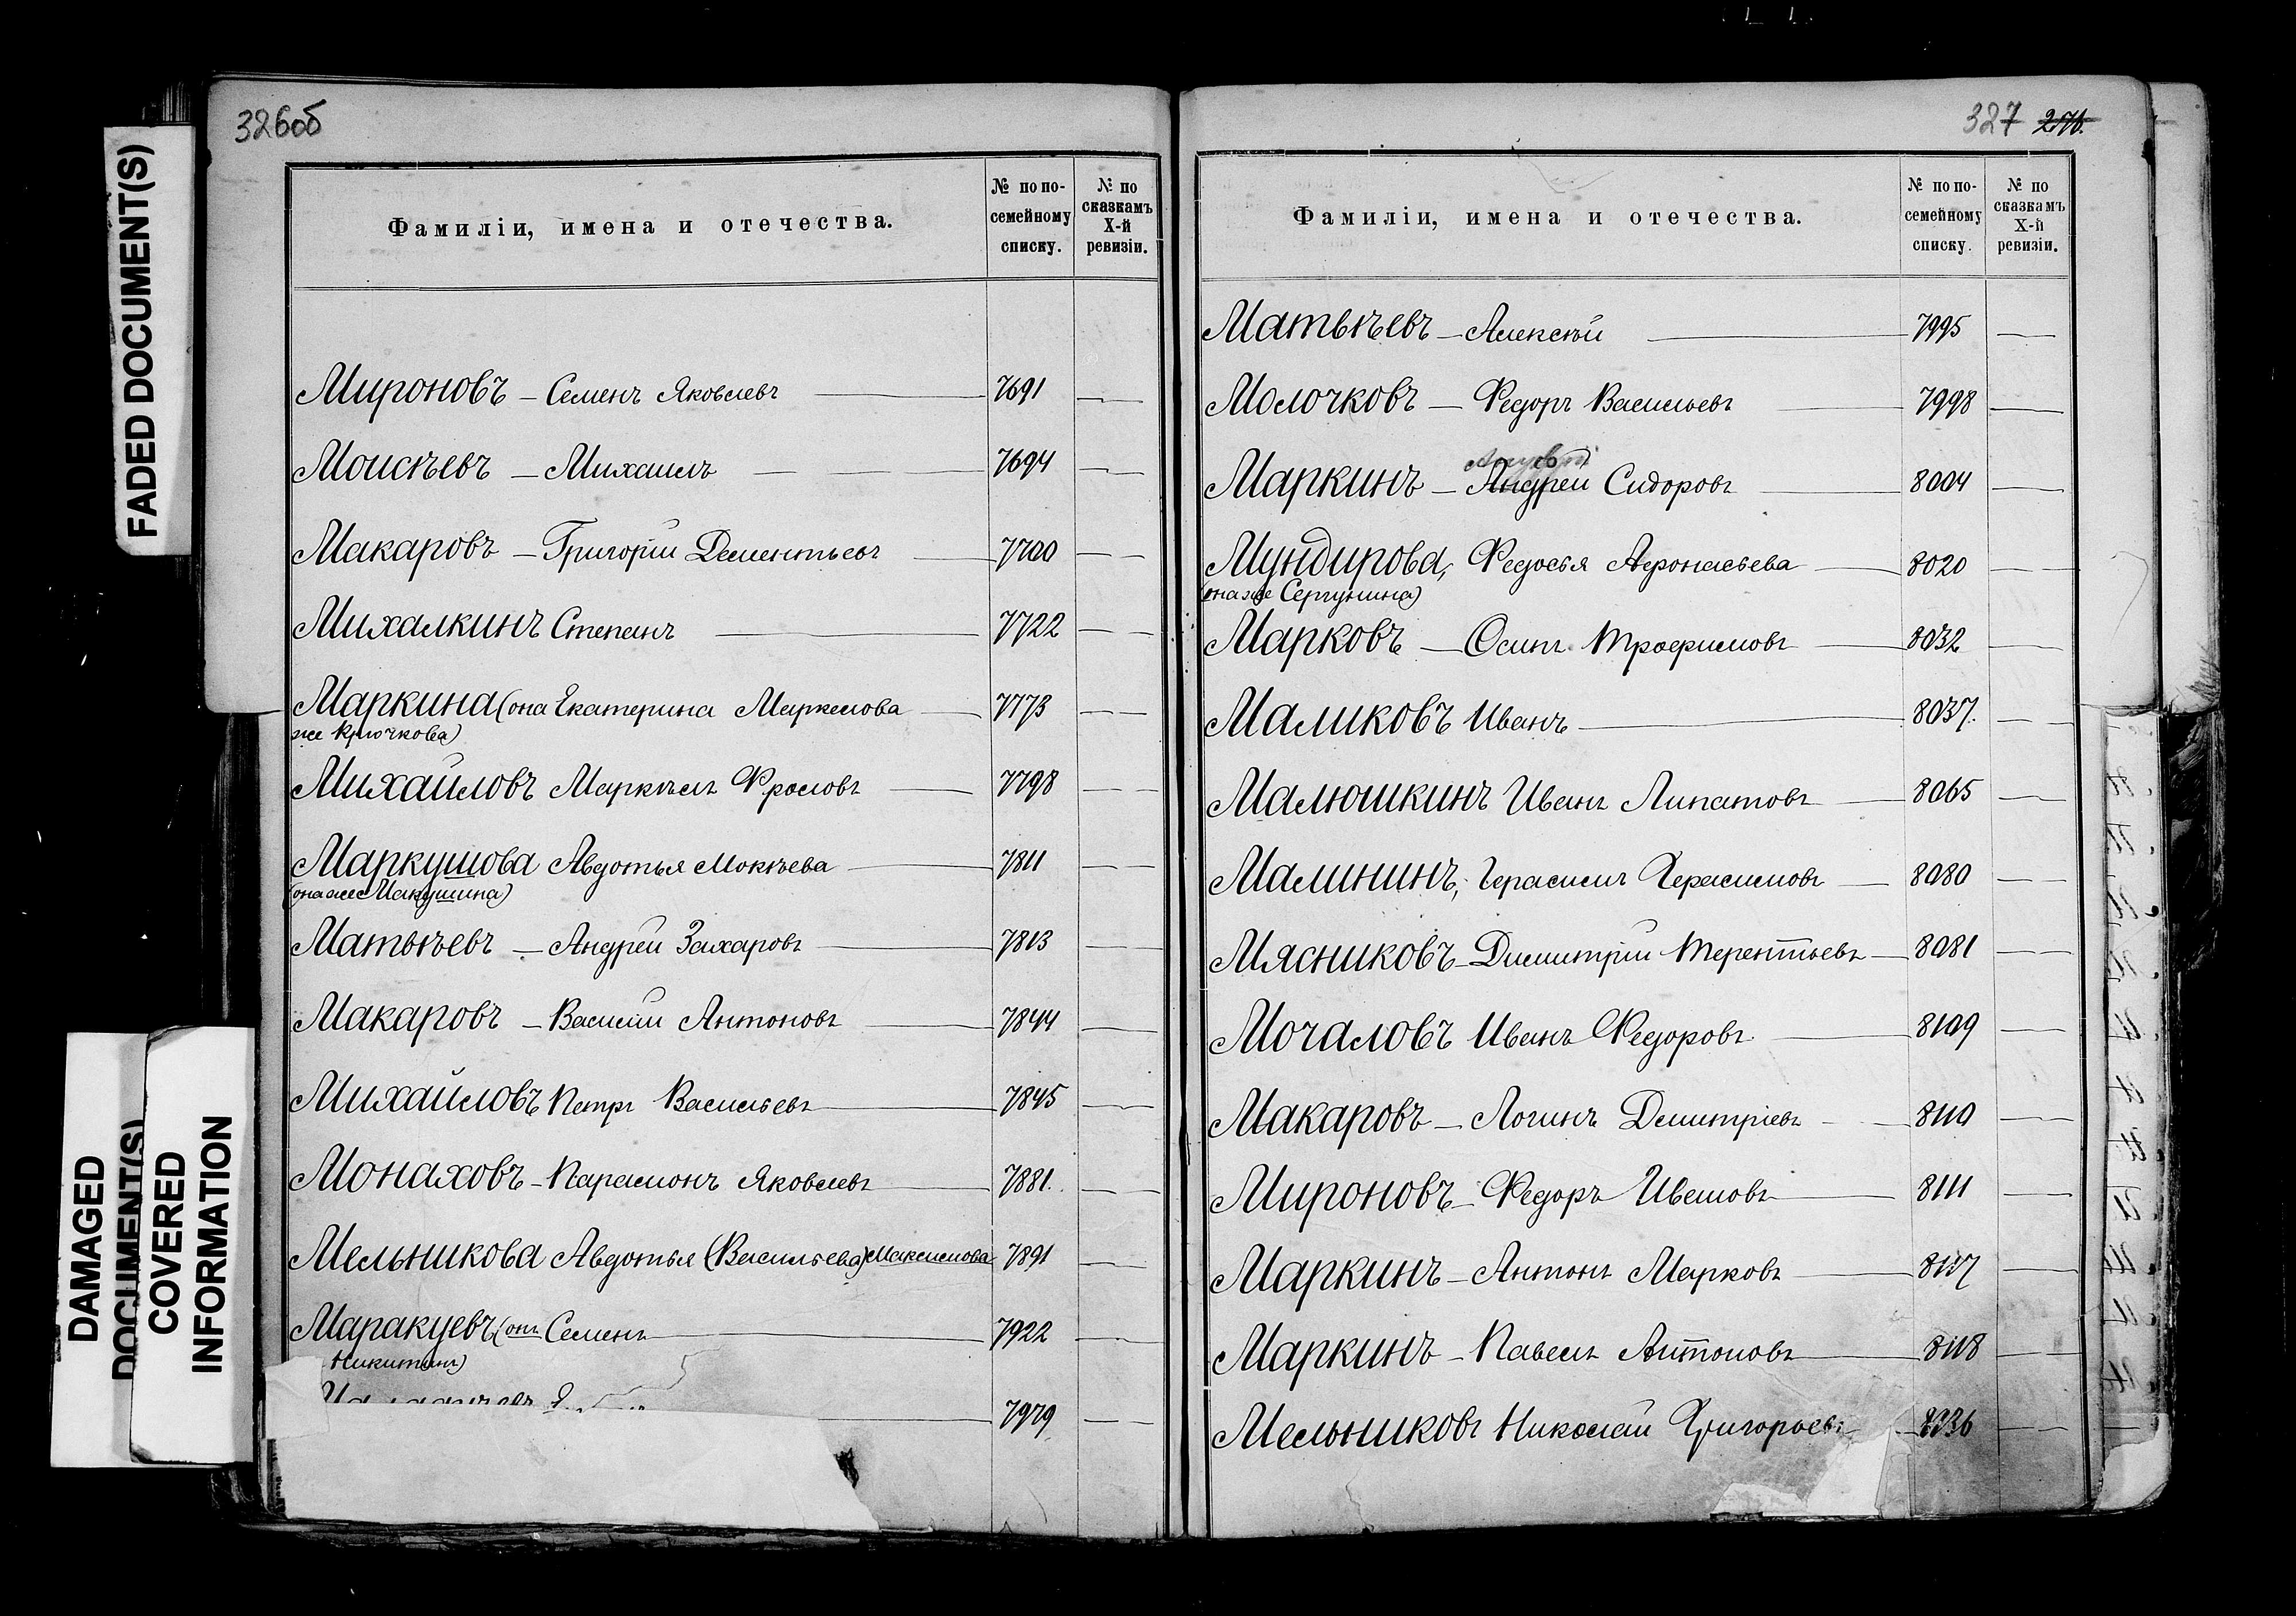 FADED DOCUMENT(S)
DAMAGED
DOCUMENT(S)
COVERED
INFORMATION
326об
Фамиліи, имена и отечества.
№ по по-
семейному
списку.
№ по
сказкамъ
X-й
ревизіи.
Мироновъ — Семенъ Яковлевъ — 7691 —
Моисѣевъ — Михаилъ — 7694 —
Макаровъ — Григорій Дементьевъ — 7700 —
Михалкинъ Степанъ — 7722 —
Маркина (она Екатерина Маркелова — 7773 —
же Крючкова)
Михайловъ Маркелъ Фроловъ — 7798 —
Маркушова Авдотья Мокѣева — 7811 —
(она же Макушина)
Матвѣевъ — Андрей Захаровъ — 7813 —
Макаровъ — Василій Антоновъ — 7844 —
Михайловъ Петръ Васильевъ — 7845 —
Монаховъ — Парамонъ Яковлевъ — 7881. —
Мельникова Авдотья (Васильева) Максимова 7891 —
Маракуевъ (онъ Семенъ — 7922 —
Никитинъ)
7979 —
327 276.
Фамиліи, имена и отечества.
№ по по-
семейному
списку.
№ по
сказкамъ
X-й
ревизіи.
Матвѣевъ — Алексѣй — 7995 —
Молочковъ — Федоръ Васильевъ — 7998 —
Маркинъ — Андрей Сидоровъ — 8004 —
Мундирова, Федосья Афонасьева — 8020 —
(она же Сергунина)
Марковъ — Осипъ Трофимовъ — 8032 —
Маликовъ Иванъ — 8037. —
Малюшкинъ Иванъ Липатовъ — 8065 —
Малининъ, Герасимъ Герасимовъ — 8080 —
Мясниковъ — Димитрій Терентьевъ — 8081 —
Мочаловъ Иванъ Федоровъ — 8109 —
Макаровъ — Логинъ Димитріевъ — 8110 —
Мироновъ — Федоръ Ивановъ — 8111 —
Маркинъ — Антонъ Марковъ — 8117 —
Маркинъ — Павелъ Антоновъ — 8118 —
Мельниковъ Николай Григорьевъ — 8136 —